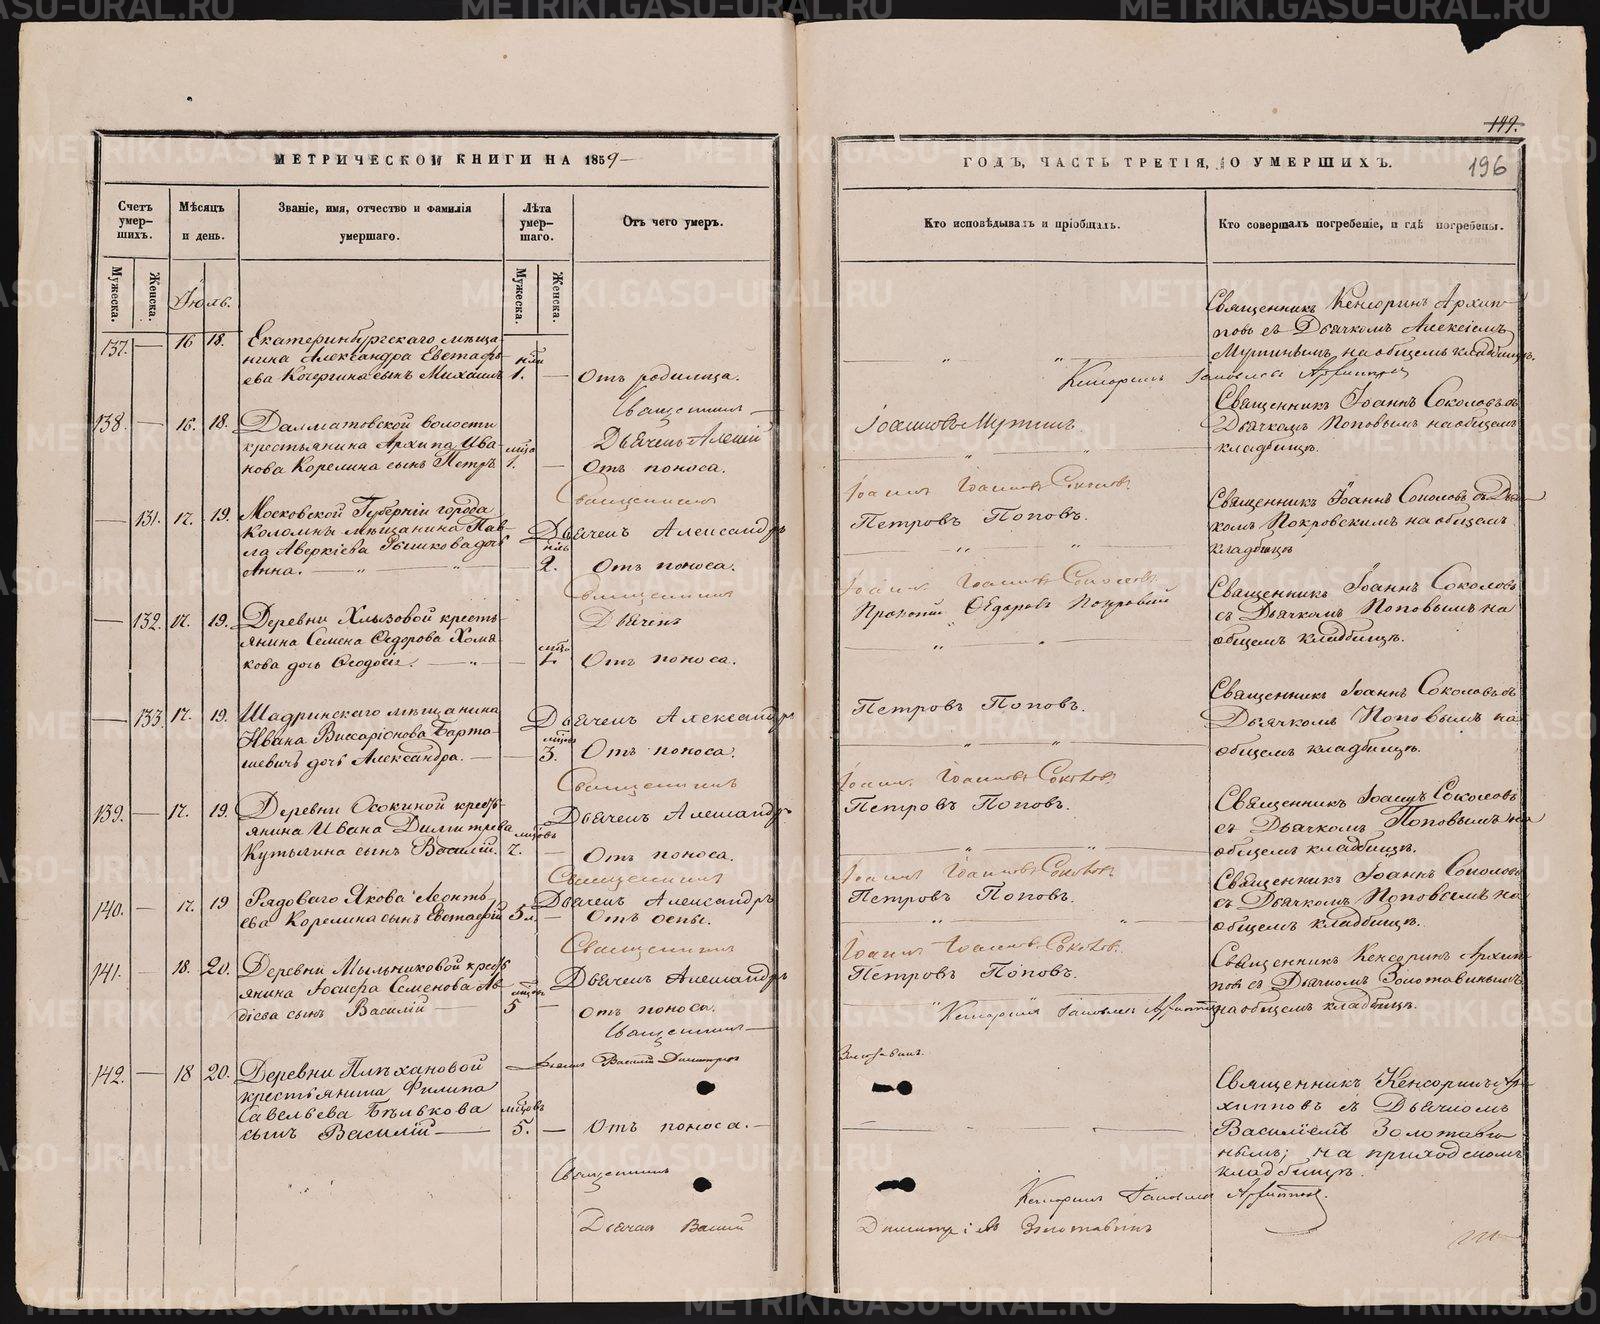 МЕТРИЧЕСКОЙ КНИГИ НА 1859
Счетъ умер-шихъ.
Мѣсяцъ и день.
Званіе, имя, отчество и фамилія умершаго.
Лѣта умер-шаго.
Отъ чего умеръ.
Мужеска.
Женска.
Мужеска.
Женска.
Іюль.
137. — 16 18. Екатеринбургскаго мѣща-
нина Александра Евстафь-
ева Кочергина сынъ Михаилъ 1. — Отъ родимца.
Священникъ
138. — 16. 18. Далматовской волости
Дьячекъ Алексій
крестьянина Архипа Ива-
нова Корелина сынъ Петръ 1. — Отъ поноса.
Священникъ
— 131. 17. 19. Московской Губерніи города
Коломны мѣщанина Пав-
Дьячекъ Александръ
ла Аверкіева дочь
Анна. — 2. Отъ поноса.
Священникъ
— 132. 17. 19. Деревни Хлызовой кресть-
Дьячекъ
янина Семена Ѳедорова Хомя-
кова дочь Ѳеодосія. — 1. Отъ поноса.
— 133. 17. 19. Шадринскаго мѣщанина
Дьячекъ Александръ
Ивана Виссаріонова Барта-
шевичъ дочь Александра. — 3. Отъ поноса.
Священникъ
139. — 17. 19. Деревни Осокиной кресть-
Дьячекъ Александръ
янина Ивана Димитріева мѣсяцовъ
Кутыгина сынъ Василій. 7. Отъ поноса.
Священникъ
140. — 17. 19 Рядоваго Якова Леонть-
Дьячекъ Александръ
ева Корелина сынъ Евстафій 5 — Отъ оспы.
Священникъ
141. — 18. 20. Деревни Мыльниковой кресть
Дьячекъ Александръ
янина Іосифа Семенова Ав-
дѣева сынъ Василій 5 — Отъ поноса.
Священникъ
Дьячекъ Василій Димитріевъ
142. — 18 20. Деревни Плѣхановой
крестьянина Филипа
Савельева Бѣлькова
сынъ Василій — 5. — Отъ поноса. —
Священникъ
Дьячекъ Василій
149.
196
ГОДЪ, ЧАСТЬ ТРЕТІЯ, О УМЕРШИХЪ.
Кто исповѣдывалъ и пріобщалъ.
Кто совершалъ погребеніе, и гдѣ погребены.
Священникъ Кенсоринъ Архип-
повъ съ Дьячкомъ Алексіемъ
Мутинымъ на общемъ кладбищѣ.
Кенсоринъ Архипповъ
Священникъ Іоаннъ Соколовъ съ
Іоанновъ Мутинъ.
Дьячкомъ Поповымъ на общемъ
кладбищѣ.
Іоаннъ Іоанновъ Соколовъ.
Священникъ Іоаннъ Соколовъ съ Дьяч-
Петровъ Поповъ.
комъ Покровскимъ на общемъ
кладбищѣ
Іоаннъ Іоанновъ Соколовъ.
Священникъ Іоаннъ Соколовъ
Прокопій Ѳедоровъ Покровскій
съ Дьячкомъ Поповымъ на
общемъ кладбищѣ.
Священникъ Іоаннъ Соколовъ съ
Петровъ Поповъ.
Дьячкомъ Поповымъ на
общемъ кладбищѣ.
Іоаннъ Іоанновъ Соколовъ.
Петровъ Поповъ.
Священникъ Іоаннъ Соколовъ
съ Дьячкомъ Поповымъ на
общемъ кладбищѣ.
Іоаннъ Іоанновъ Соколовъ.
Священникъ Іоаннъ Соколовъ
Петровъ Поповъ.
съ Дьячкомъ Поповымъ на
общемъ кладбищѣ.
Іоаннъ Іоанновъ Соколовъ.
Священникъ Кенсоринъ Архип-
Петровъ Поповъ.
повъ съ Дьячкомъ Золотавинымъ
на общемъ кладбищѣ.
Кенсоринъ Архипповъ
Золотавинъ.
Священникъ Кенсоринъ Ар-
хипповъ съ Дьячкомъ
Василіемъ Золотави-
нымъ; на приходскомъ
кладбищѣ.
Кенсоринъ Архипповъ.
Димитріевъ Золотавинъ
METRIKI.GASO-URAL.RU